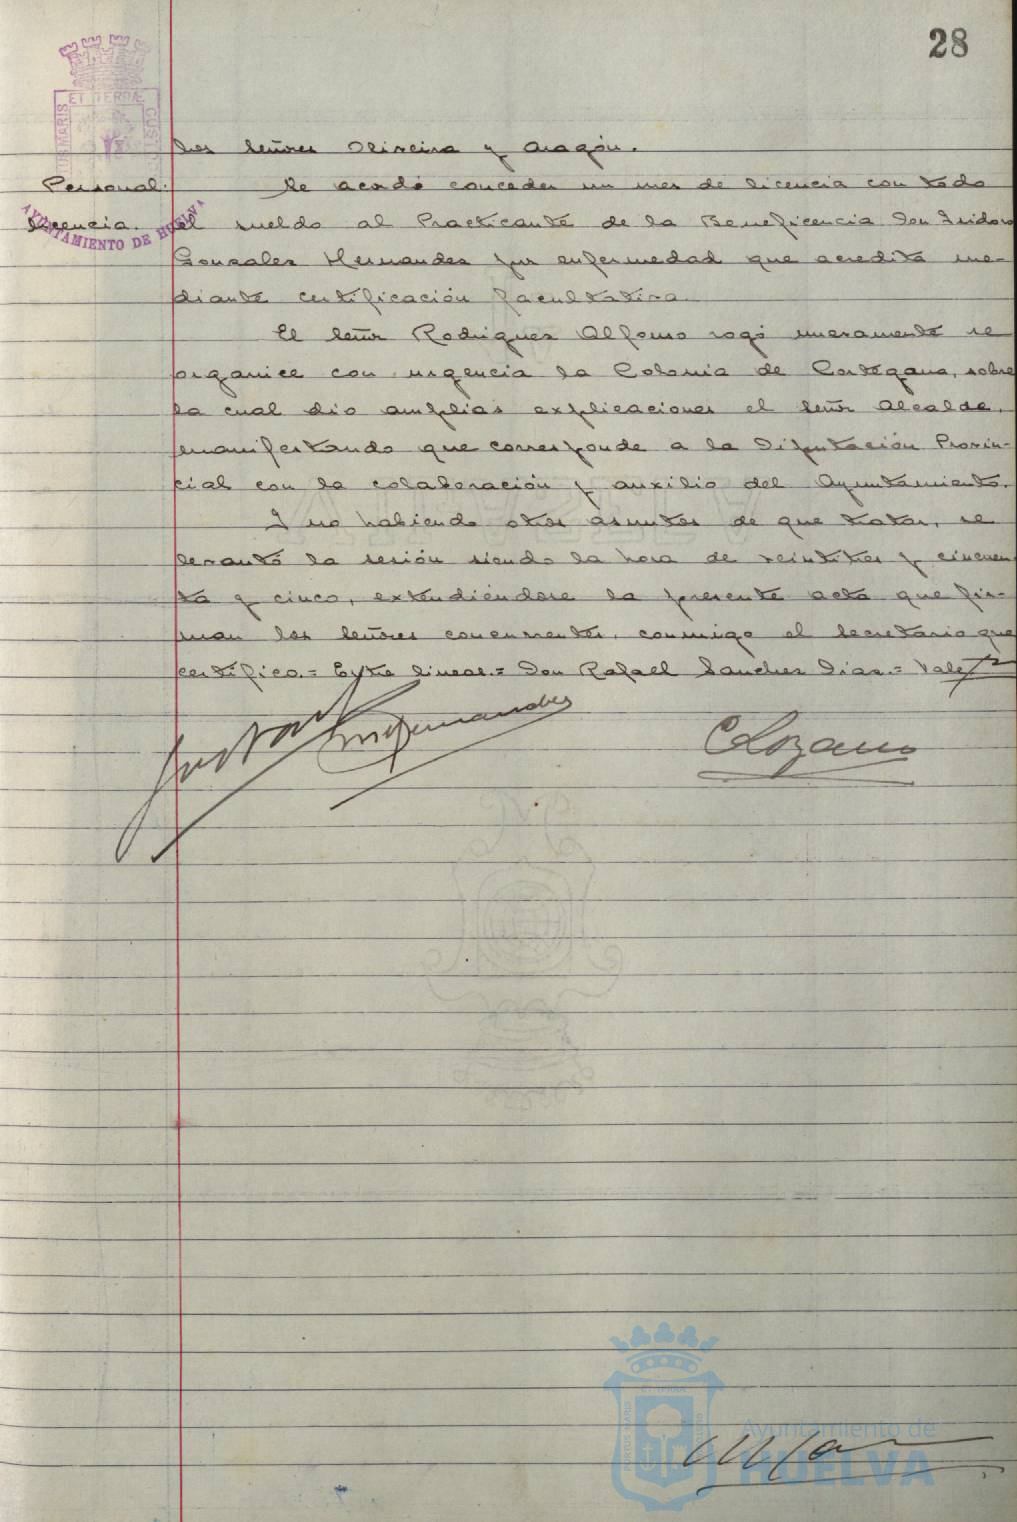 28
los señores Oliveira y Aragón.
Personal. Se acordó conceder un mes de licencia con todo
licencia. el sueldo al Practicante de la Beneficencia Don Isidoro
Gonzalez Hernandez por enfermedad que acredita me-
diante certificación facultativa.
El señor Rodriguez Alfonso rogó nuevamente se
organice con urgencia la Colonia de Cortegana, sobre
la cual dio amplias explicaciones el señor Alcalde,
manifestando que corresponde a la Diputación Provin-
cial con la colaboración y auxilio del Ayuntamiento.
Y no habiendo otros asuntos de que tratar, se
levantó la sesión siendo la hora de veintitres y cincuen
ta y cinco, extendiéndose la presente acta que fir-
man los señores concurrentes, conmigo el Secretario que
certifico.= Entre lineas.= Don Rafael Sanchez Diaz.= Vale
AYUNTAMIENTO DE HUELVA
ET TERRÆ
Lozano
Ayuntamiento de
HUELVA